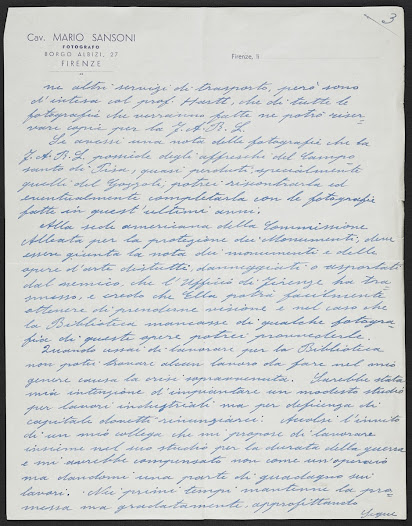 3
Cav. MARIO SANSONI
FOTOGRAFO
BORGO ALBIZI, 27
FIRENZE
Firenze, li
ne altri servizi di trasporto, però sono
d'intesa col prof. Hartt, che di tutte le
fotografie che verranno fatte ne potrò riser-
vare copie per la F.A.R.L.
Se avessi una nota delle fotografie che la
F.A.R.L. possiede degli affreschi del Campo-
santo di Pisa, quasi perduti, specialmente
quelli del Gozzoli, potrei riscontrarla ed
eventualmente completarla con le fotografie
fatte in quest'ultimi anni.
Alla sede americana della Commissione
Alleata per la protezione dei Monumenti, deve
essere giunta la nota dei monumenti e delle
opere d'arte distrutte, danneggiati o asportati
dal nemico, che l'Ufficio di Firenze ha tra
smesso, e credo che Ella potrà facilmente
ottenere di prenderne visione e nel caso che
la Biblioteca mancasse di qualche fotogra-
fia di queste opere potrei provvederle.
Quando cessai di lavorare per la Biblioteca
non potei trovare alcun lavoro da fare nel mio
genere causa la crisi sopravvenuta. Sarebbe stata
mia intenzione d'impiantare un modesto studio
per lavori industriali ma per deficenza di
capitale dovetti rinunziarci. Accolsi l'invito
di un mio collega che mi propose di lavorare
insieme nel suo studio per la durata della guerra
e mi avrebbe compensato non come un operaio
ma dandomi una parte di guadagno sui
lavori. Nei primi tempi mantenne la pro-
messa ma gradatamente, approfittando
segue